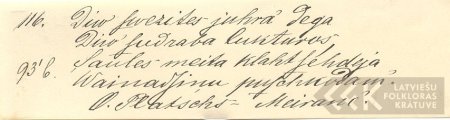 116. Diw swezites juhrâ dega
Diw sudraba lukturos
93'6. Saules meita klaht sehdeja
Wainadziņu puschkodam'
O. Platschs - Meiran'
LATVIEŠU
FOLKLORAS
KRĀTUVE